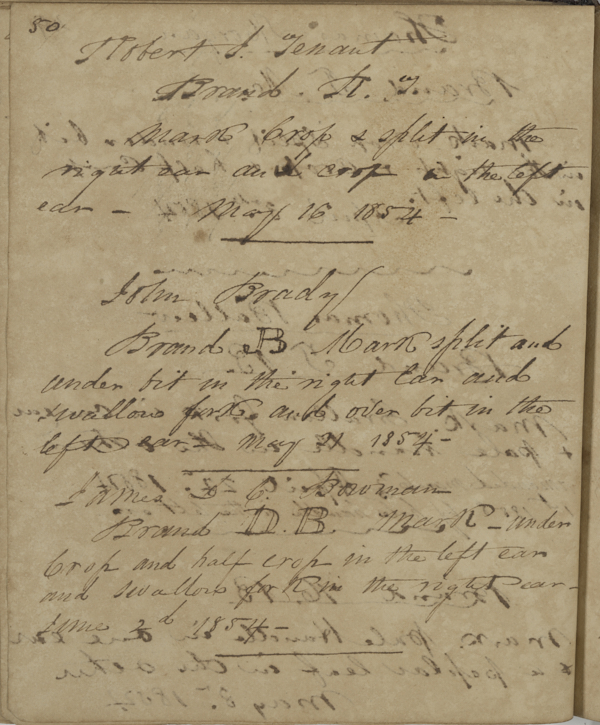 50
Robert J. Tenant
Brand. R. T
Mark Crop & split in the
right ear and crop in the left
ear - May 16 1854 -
John Brady
Brand JB Mark split and
under bit in the right Ear and
swallow fork and over bit in the
left ear - May 31 1854 -
James C. Bowman
Brand D. B. Mark - under
Crop and half crop in the left ear
and swallow fork in the right ear -
June 2d 1854 -